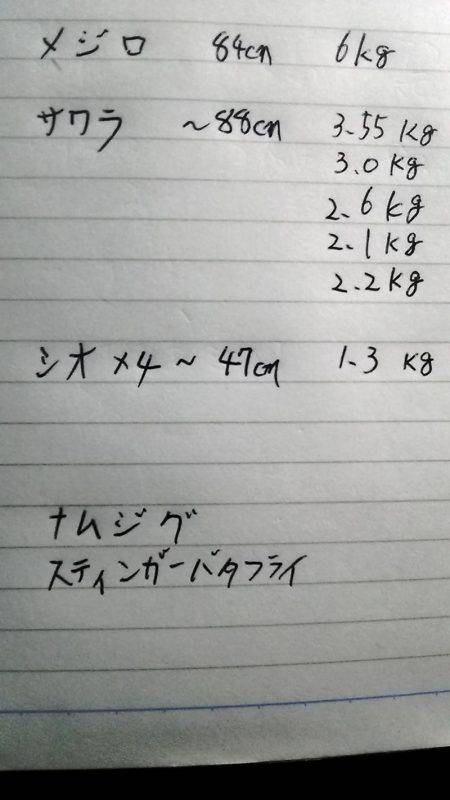 メジロ 84cm 6kg
サワラ ~88cm 3.55kg
3.0kg
2.6kg
2.1kg
2.2kg
シオ×4 ~47cm 1.3kg
ナムジグ
スティンガーバタフライ